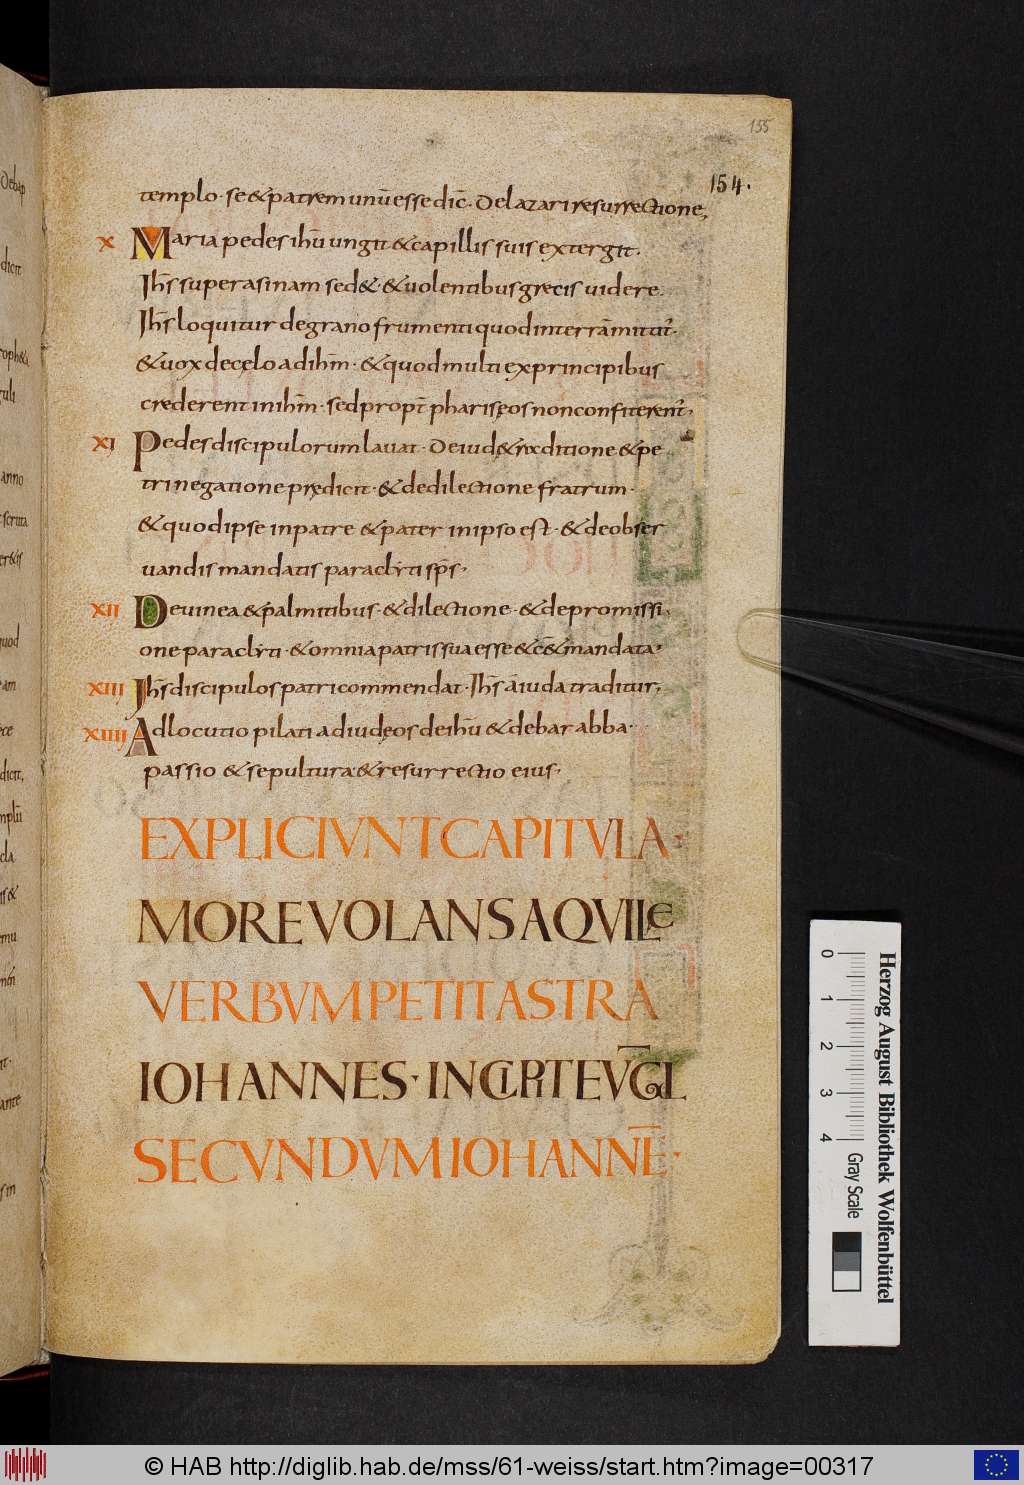 155
154.
templo· se & patrem unū esse dic̄· De lazari resurrectione,
X Maria pedes ihū ungit & capillis suis extergit.
Ihs̄ super asinam sed&· & uolentibus grecis uidere
Ihs̄ loquitur de grano frumenti quod in terrā mittit̄·
& uox de cęlo ad ihm̄· & quod multi ex principibus
crederent in ihm̄· sed propt̄ phariseos non confiterent̄·
XI Pedes discipulorum lauat· De iud& proditione & pe
tri negatione prędicit· & de dilectione fratrum·
& quod ipse in patre & pater in ipso est· & de obser
uandis mandatis paraclyti sps̄·
XII De uinea & palmitibus· & dilectione· & de promissi
one paraclyti· & omnia patris sua esse & c̄& mandata·
XIII Ihs̄ discipulos patri commendat· Ihs̄ a iuda traditur·
XIIII Adlocutio pilati ad iudęos de ihū & de barabba·
passio & sepultura & resurrectio eius·
EXPLICIVNT CAPITVLA·
MORE VOLANS AQVILÆ
VERBVM PETIT ASTRA
IOHANNES· INCIPIT EVḠL
SECVNDVM IOHANNĒ·
0 1 2 3 4
Gray Scale
Herzog August Bibliothek Wolfenbüttel
© HAB http://diglib.hab.de/mss/61-weiss/start.htm?image=00317